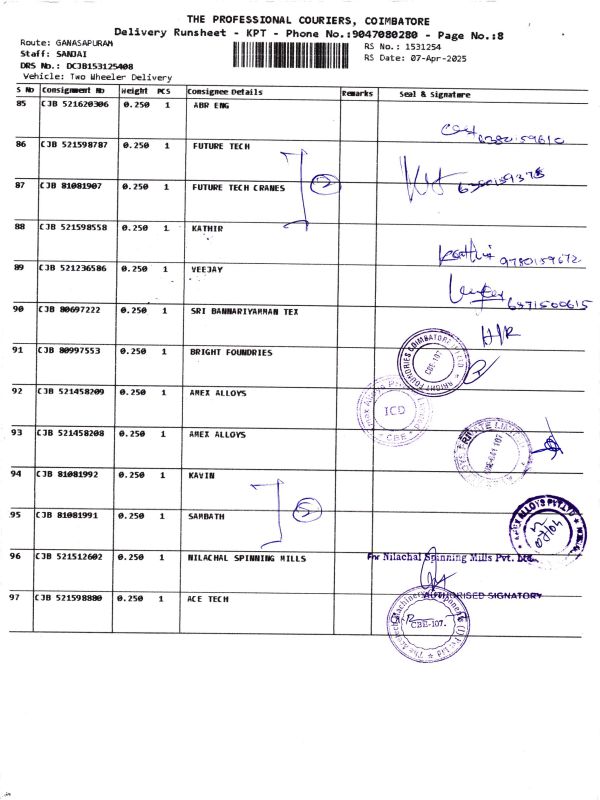 THE PROFESSIONAL COURIERS, COIMBATORE
Delivery Runsheet - KPT - Phone No.:9047080280 - Page No.:8
Route: GANASAPURAM
Staff: SANJAI
DRS No.: DCJB153125408
Vehicle: Two Wheeler Delivery
RS No.: 1531254
RS Date: 07-Apr-2025
S No Consignment No Weight PCS Consignee Details Remarks Seal & Signature
85 CJB 521620306 0.250 1 ABR ENG
86 CJB 521598787 0.250 1 FUTURE TECH
87 CJB 81081907 0.250 1 FUTURE TECH CRANES
88 CJB 521598558 0.250 1 KATHIR
Kathir 9780159672
89 CJB 521236586 0.250 1 VEEJAY
6371500615
90 CJB 80697222 0.250 1 SRI BANNARIYAMMAN TEX
H/R
91 CJB 80997553 0.250 1 BRIGHT FOUNDRIES
BRIGHT FOUNDRIES COIMBATORE
CBE-107
92 CJB 521458209 0.250 1 AMEX ALLOYS
ICD
CBE
93 CJB 521458208 0.250 1 AMEX ALLOYS
94 CJB 81081992 0.250 1 KAVIN
95 CJB 81081991 0.250 1 SAMBATH
ALLOYS PVT.LTD
96 CJB 521512602 0.250 1 NILACHAL SPINNING MILLS
For Nilachal Spinning Mills Pvt. Ltd.
AUTHORISED SIGNATORY
97 CJB 521598880 0.250 1 ACE TECH
CBE-107.